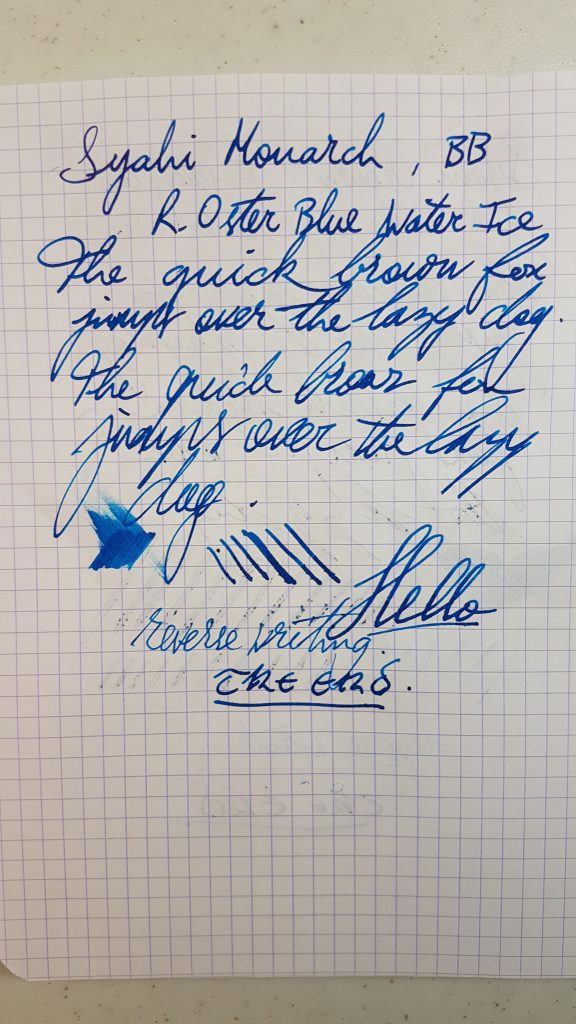 Syahi Monarch, BB
R. Oster Blue Water Ice
The quick brown fox
jumps over the lazy dog.
The quick brown fox
jumps over the lazy
dog.
Hello
reverse writing.
THE END.